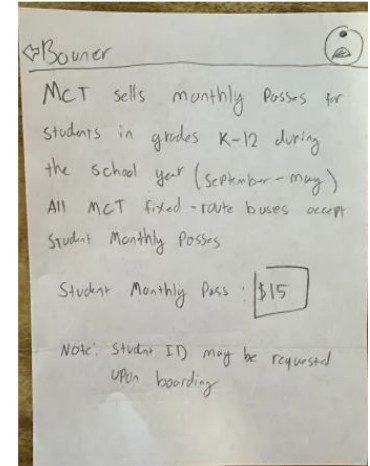 Bouner
MCT sells monthly Passes for
students in grades K-12 during
the school year (September - may)
All MCT fixed-route buses accept
Student Monthly Passes
Student Monthly Pass : $15
Note: Student ID may be requested
upon boarding